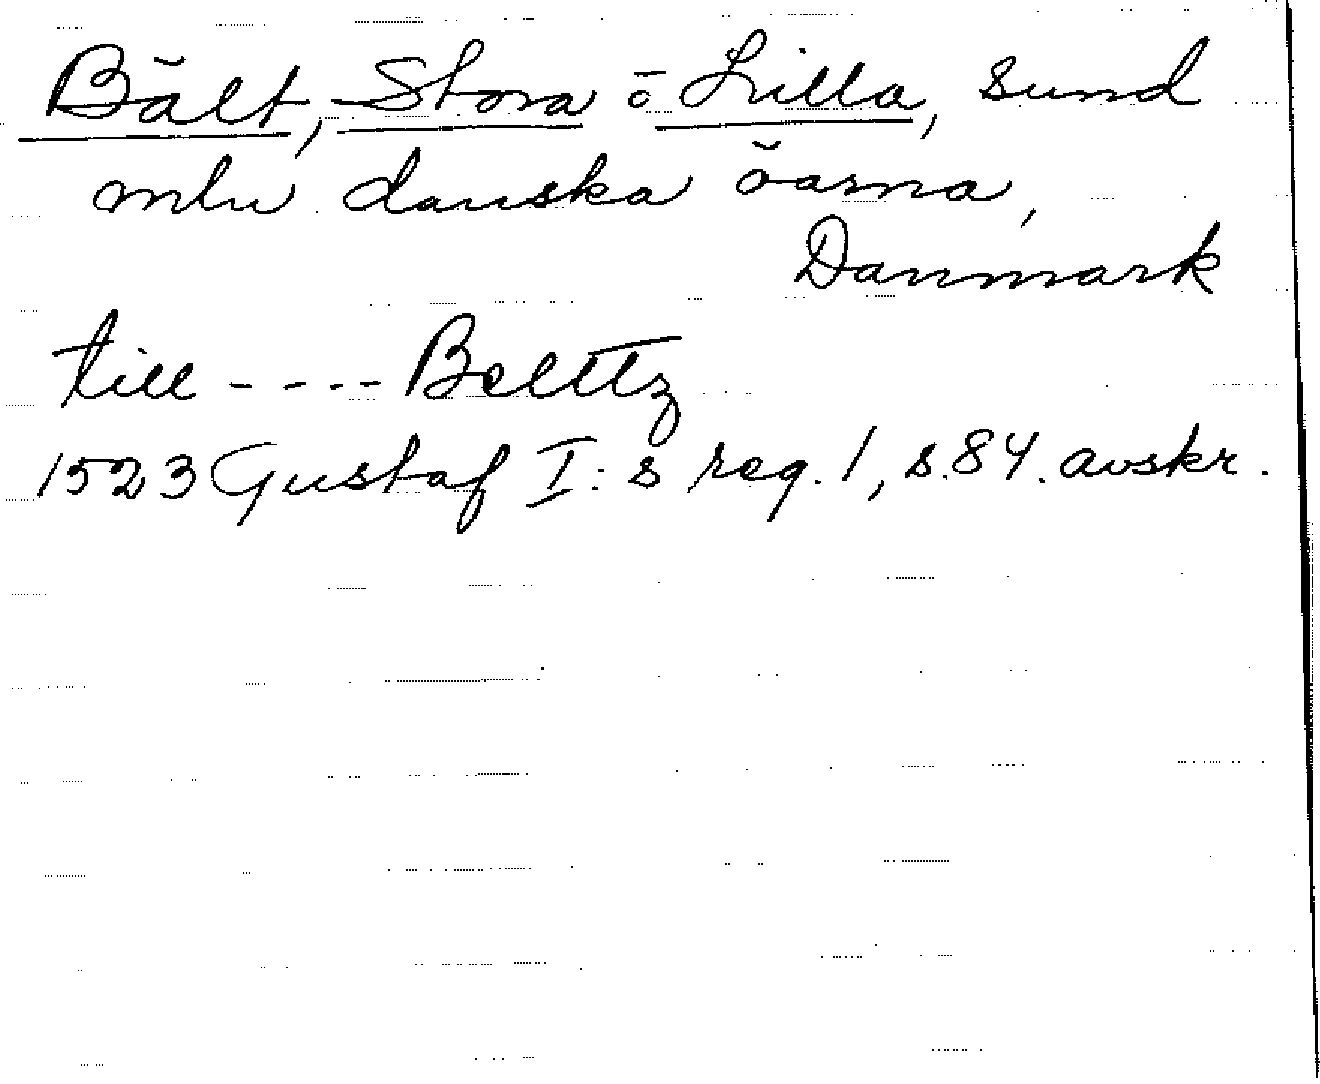 Bält, Stora o Lilla, sund
mln danska öarna,
Danmark
till - - - - Belttz
1523 Gustaf I:s reg. 1, s. 84. avskr.